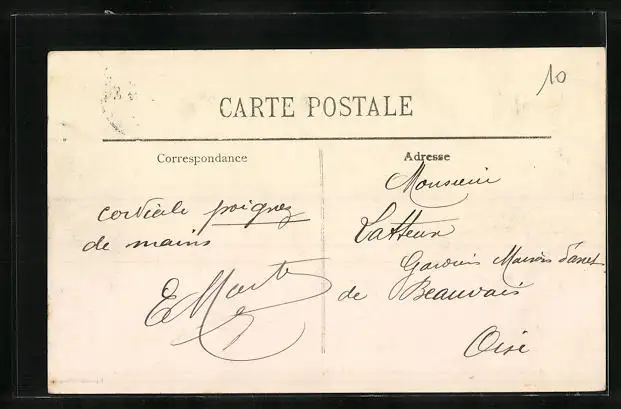 10
CARTE POSTALE
Correspondance
Adresse
cordiale poignez
de mains
E Mart
Monsieur
Latteux
Gardien Maison d'arret
de Beauvais
Oise